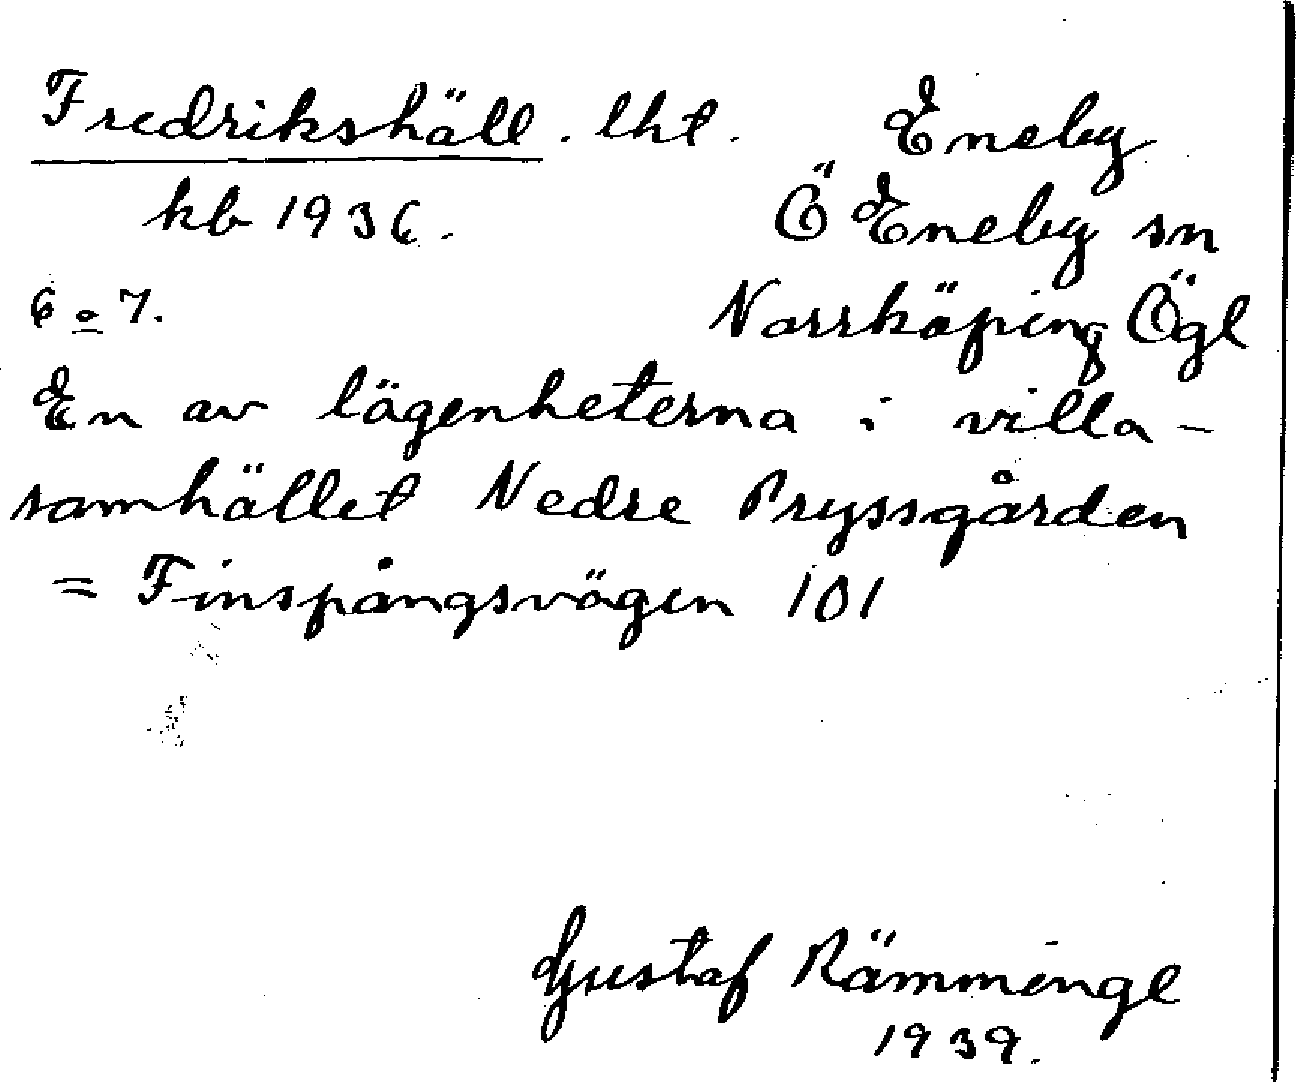 Fredrikshäll. lht. Eneby
kb 1936. Ö Eneby sn
6 o 7. Norrköping Ögl
En av lägenheterna i villa-
samhället Nedre Pryssgården
= Finspångsvägen 101
Gustaf Rämmingl
1939.